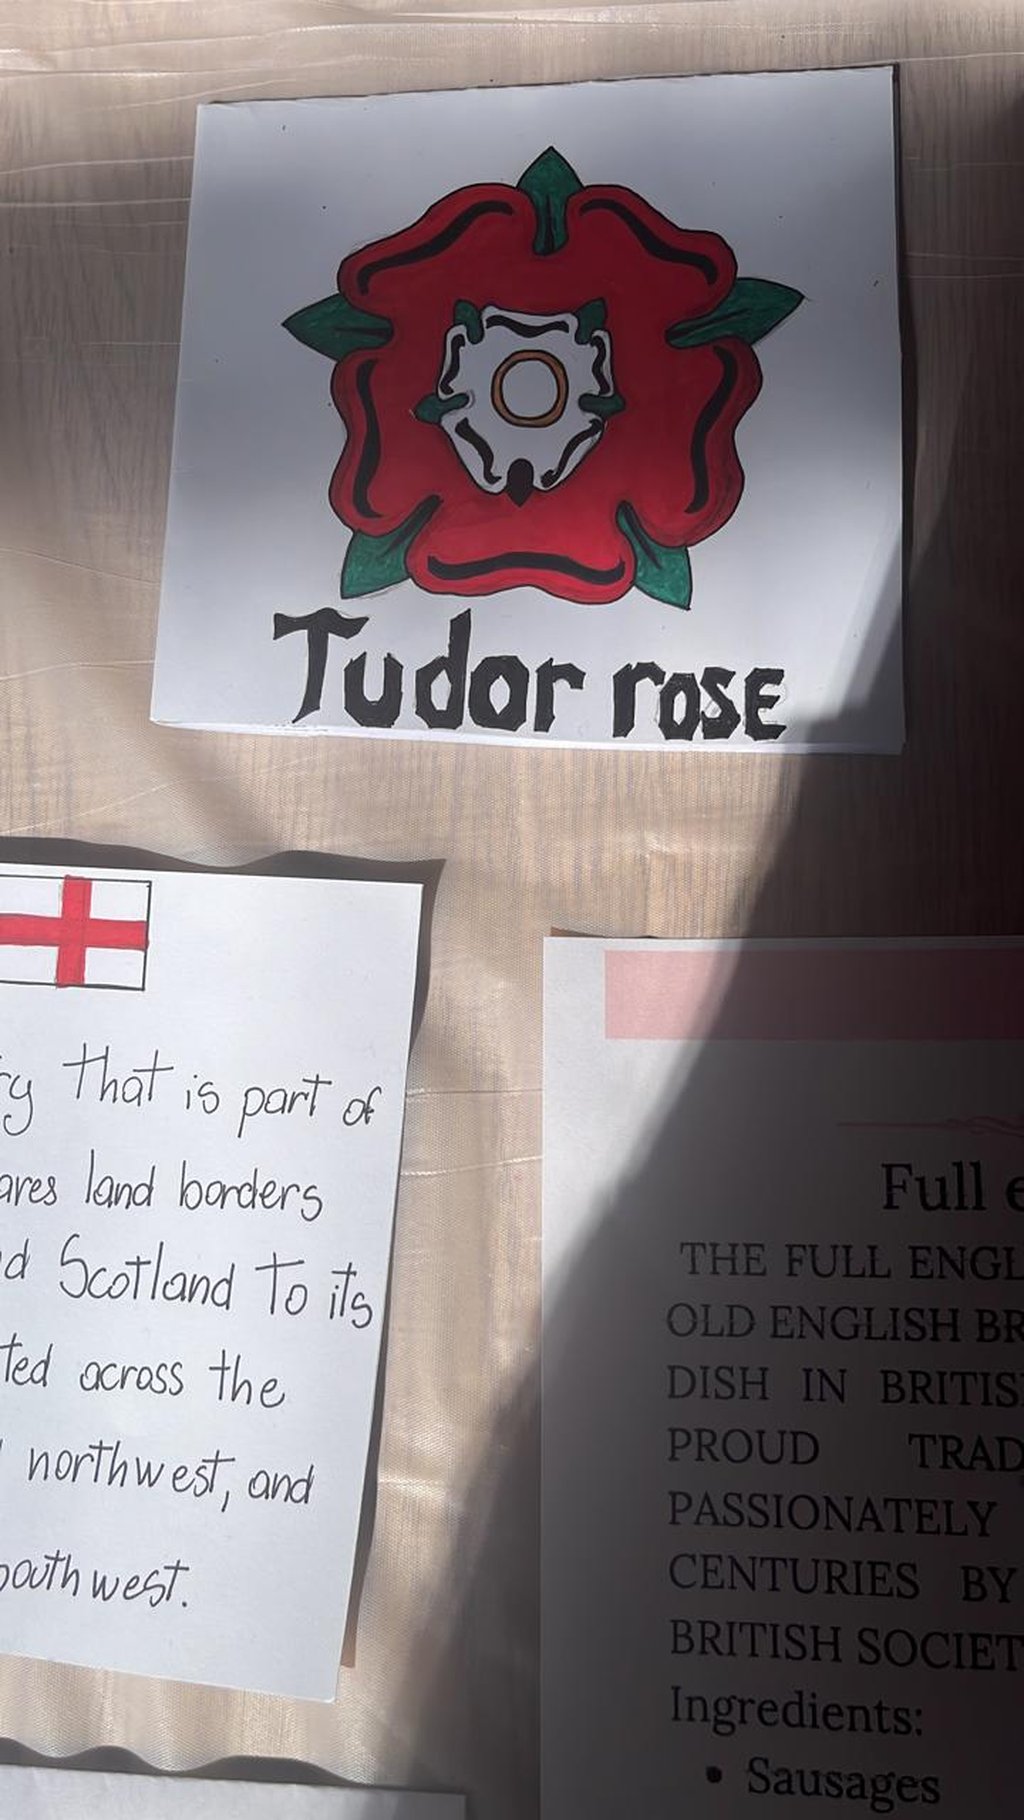 Tudor rose
that is part of
land borders
Scotland to its
across the
northwest, and
southwest.
Full
THE FULL
OLD ENGLISH
DISH IN
PROUD
PASSIONATELY
CENTURIES BY
BRITISH
Ingredients:
• Sausages